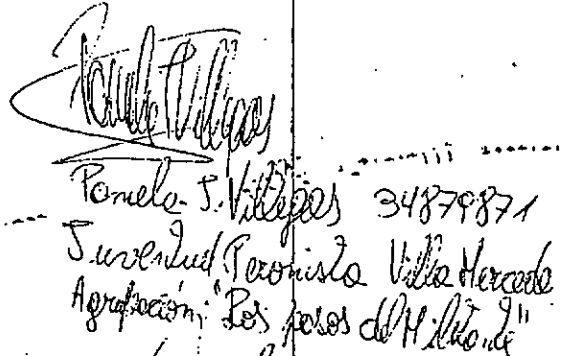 Pamela Villegas
Pamela J. Villegas 34879871
Juventud Peronista Villa Mercedes
Agrupación: "Los pasos del Militante"